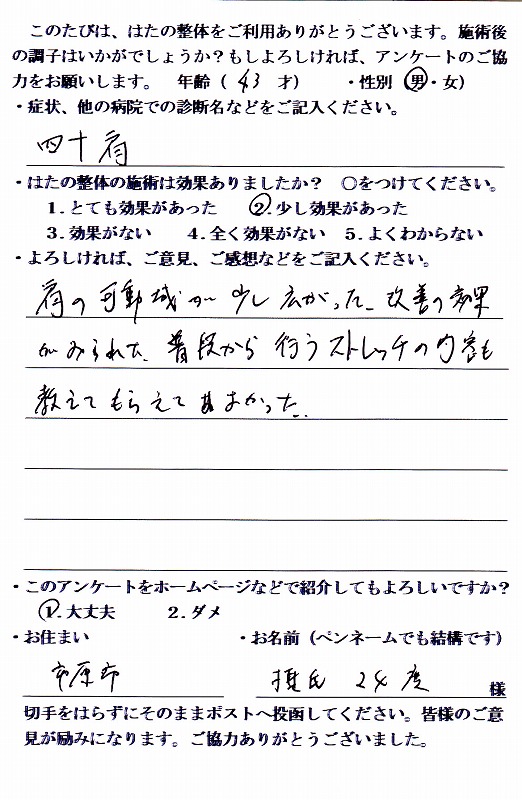 このたびは、はたの整体をご利用ありがとうございます。施術後
の調子はいかがでしょうか？もしよろしければ、アンケートのご協
力をお願いします。 年齢（ 43 才） ・性別（男・女）
・症状、他の病院での診断名などをご記入ください。
四十肩
・はたの整体の施術は効果ありましたか？ ○をつけてください。
1．とても効果があった ②．少し効果があった
3．効果がない 4．全く効果がない 5．よくわからない
・よろしければ、ご意見、ご感想などをご記入ください。
肩の可動域が少し広がった。改善の効果
がみられた。普段から行うストレッチの内容も
教えてもらえてよかった。
・このアンケートをホームページなどで紹介してもよろしいですか？
①．大丈夫 2．ダメ
・お住まい ・お名前（ペンネームでも結構です）
市原市 摂氏 24度 様
切手をはらずにそのままポストへ投函してください。皆様のご意
見が励みになります。ご協力ありがとうございました。